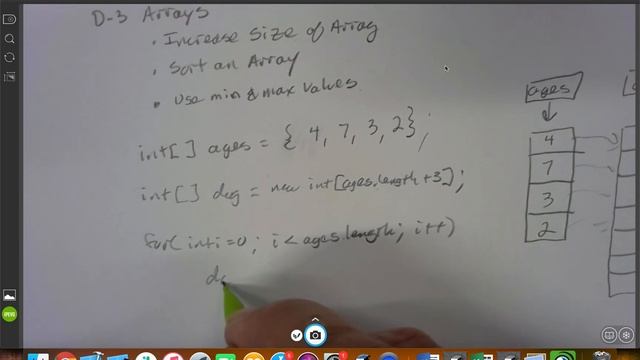 D-3 Arrays
• Increase Size of Array
• Sort an Array
• Use min & max values
int[] ages = { 4, 7, 3, 2};
int[] dog = new int[ages.length+3];
for( int i=0; i < ages.length; i++)
do
ages
4
7
3
2
IPEVO